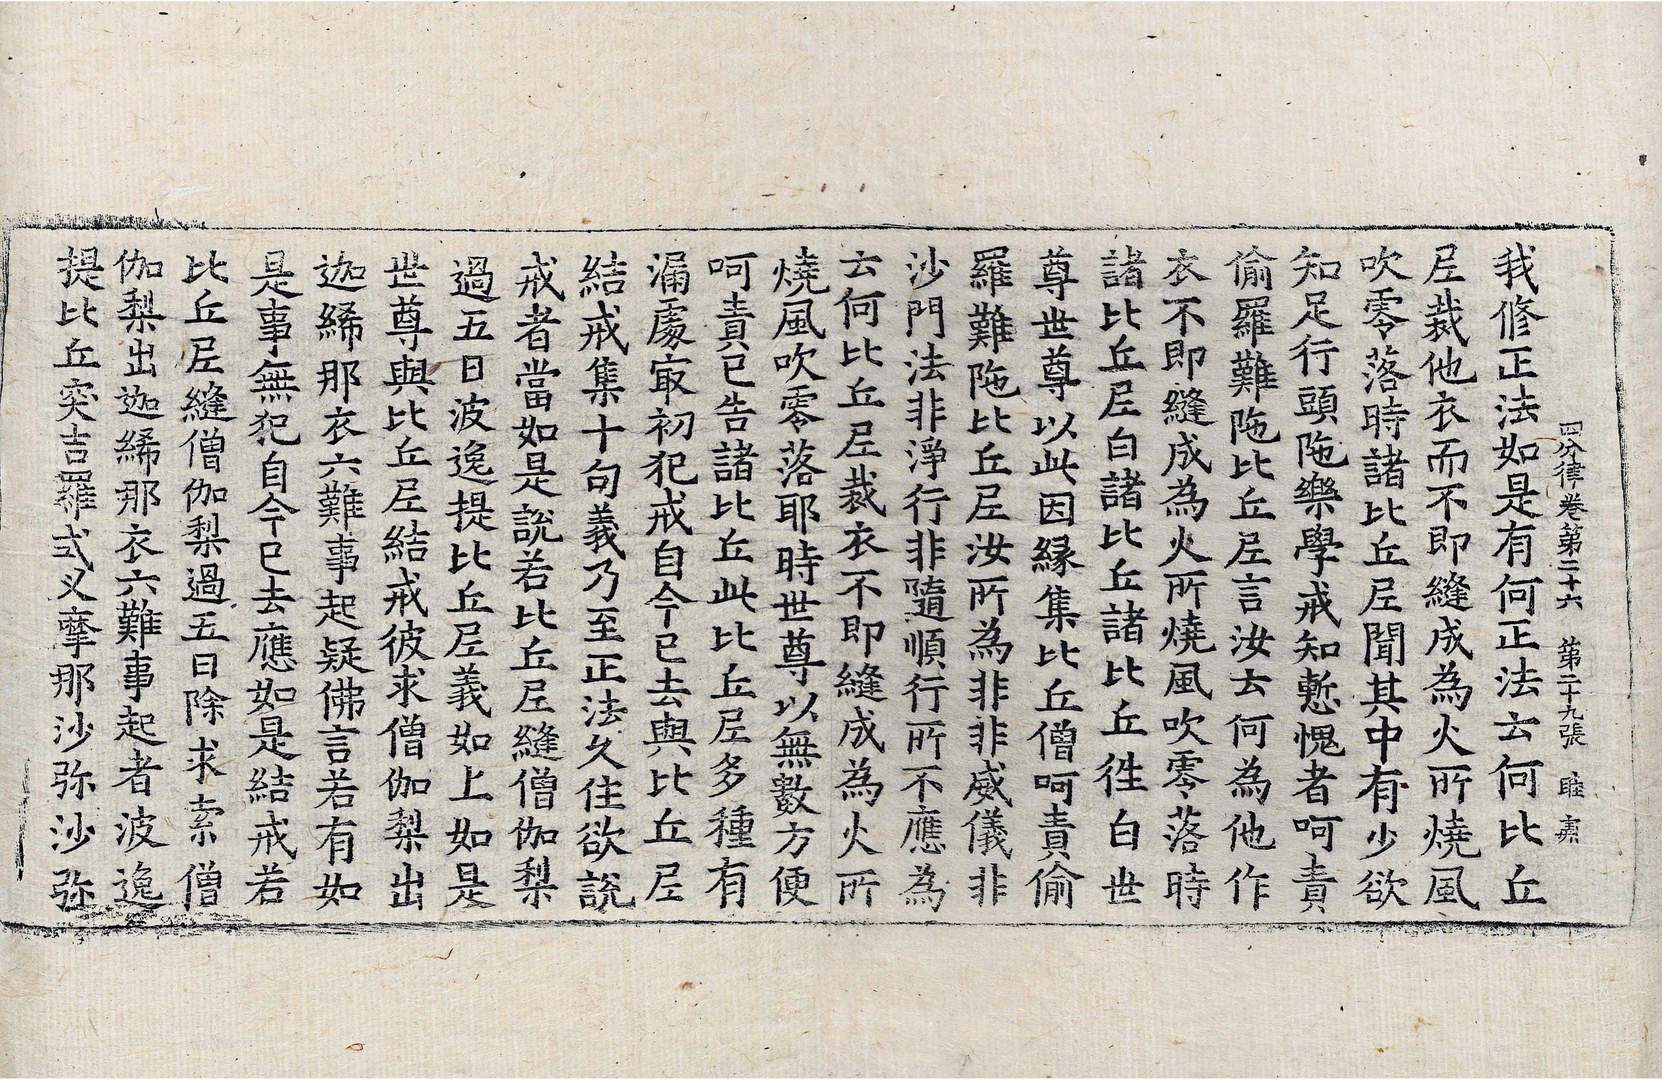 四分律卷第二十六 第二十九張 睢
我修正法如是有何正法云何比丘
尼裁他衣而不即縫成為火所燒風
吹零落時諸比丘尼聞其中有少欲
知足行頭陁樂學戒知慙愧者呵責
偷羅難陁比丘尼言汝云何為他作
衣不即縫成為火所燒風吹零落時
諸比丘尼白諸比丘諸比丘徃白世
尊世尊以此因緣集比丘僧呵責偷
羅難陁比丘尼汝所為非非威儀非
沙門法非淨行非隨順行所不應為
云何比丘尼裁衣不即縫成為火所
燒風吹零落耶時世尊以無數方便
呵責已告諸比丘此比丘尼多種有
漏處㝡初犯戒自今已去與比丘尼
結戒集十句義乃至正法久住欲說
戒者當如是說若比丘尼縫僧伽梨
過五日波逸提比丘尼義如上如是
世尊與比丘尼結戒彼求僧伽梨出
迦絺那衣六難事起疑佛言若有如
是事無犯自今已去應如是結戒若
比丘尼縫僧伽梨過五日除求索僧
伽梨出迦絺那衣六難事起者波逸
提比丘突吉羅式叉摩那沙弥沙弥